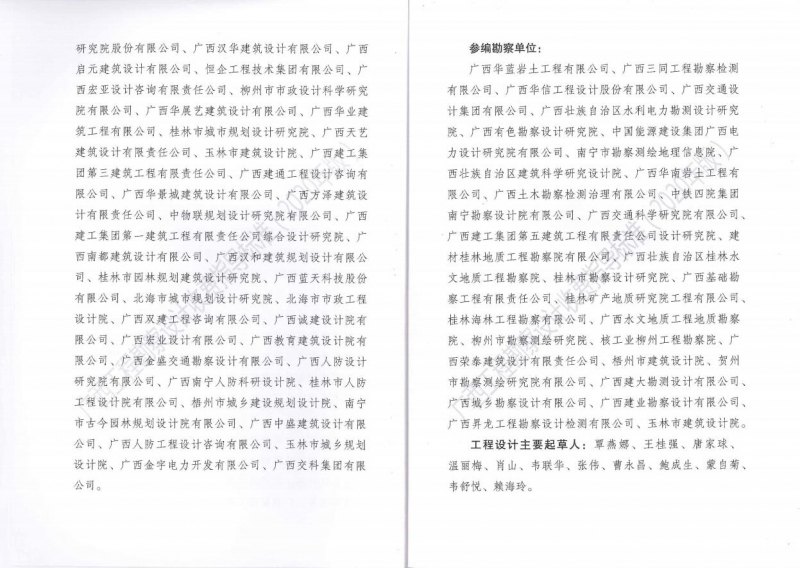 研究院股份有限公司、广西汉华建筑设计有限公司、广西
启元建筑设计有限公司、恒企工程技术集团有限公司、广
西宏亚设计咨询有限责任公司、柳州市市政设计科学研究
院有限公司、广西华展艺建筑设计有限公司、广西华业建
筑工程有限公司、桂林市城市规划设计研究院、广西天艺
建筑设计有限责任公司、玉林市建筑设计院、广西建工集
团第三建筑工程有限责任公司、广西建通工程设计咨询有
公司、广西华景城建筑设计有限公司、广西方泽建筑设
计有限责任公司、中物联规划设计研究院有限公司、广西
建工集团第一建筑工程有限责任公司综合设计研究院、广
西南都建筑设计院有限公司、广西汉和建筑规划设计有限公
司、桂林市园林规划建筑设计研究院、广西蓝天科技股份
有限公司、北海市城市规划设计研究院、北海市市政工程
设计院、广西双建工程咨询有限公司、广西诚建设计院有
限公司、广西宏业设计有限公司、广西教育建筑设计院、
广西金盛交通勘察设计有限公司、广西人防设计
研究院有限公司、广西南宁人防科研设计院、桂林市人防
工程设计院有限公司、梧州市城乡建设规划设计院、南宁
市古今园林规划设计院有限公司、广西中盛建筑设计有限
公司、广西人防工程设计咨询有限公司、玉林市城乡规划
设计院、广西金宇电力开发有限公司、广西交科集团有限
公司。
参编勘察单位：
广西华蓝岩土工程有限公司、广西三同工程勘察检测
有限公司、广西华信工程设计股份有限公司、广西交通设
计集团有限公司、广西壮族自治区水利电力勘测设计研究
院、广西有色勘察设计研究院、中国能源建设集团广西电
力设计研究院有限公司、南宁市勘察测绘地理信息院、广
西壮族自治区建筑科学研究设计院、广西华南岩土工程有
限公司、广西土木勘察检测治理有限公司、中铁四院集团
南宁勘察设计院有限公司、广西交通科学研究院有限公司、
广西建工集团第五建筑工程有限责任公司设计研究院、建
材桂林地质工程勘察院有限公司、广西壮族自治区桂林水
文地质工程勘察院、桂林市勘察设计研究院、广西基础勘
察工程有限责任公司、桂林矿产地质研究院工程有限公司、
桂林海林工程勘察有限公司、广西水文地质工程地质勘察
院、柳州市勘察测绘研究院、核工业柳州工程勘察院、广
西荣泰建筑设计有限责任公司、梧州市建筑设计院、贺州
市勘察测绘研究院有限公司、广西建大勘测设计有限公司、
广西城乡勘察设计有限公司、广西建业勘察设计有限公司、
广西昇龙工程勘察设计检测有限公司、玉林市建筑设计院。
工程设计主要起草人：覃燕娜、王桂强、唐家球、
温丽梅、肖山、韦联华、张伟、曹永昌、鲍成生、蒙自菊、
韦舒悦、赖海玲。